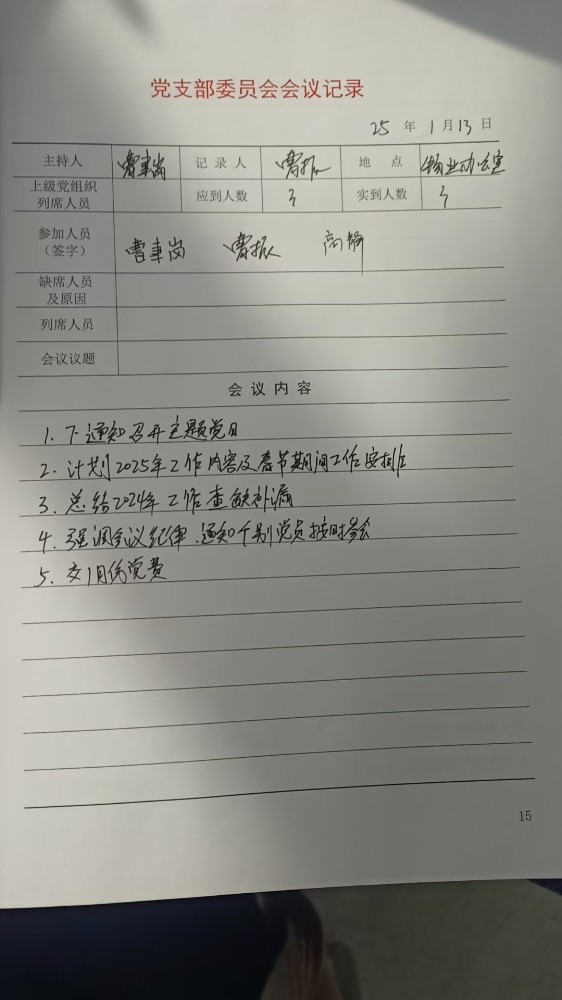 党支部委员会会议记录
25 年 1 月 13 日
主持人 曹事岗 记录人 曹振 地点 物业办公室
上级党组织列席人员 应到人数 3 实到人数 3
参加人员（签字） 曹事岗 曹振 高
缺席人员及原因
列席人员
会议议题
会议内容
1. 下通知召开主题党日
2. 计划2025年工作内容及春节期间工作安排
3. 总结2024年工作查缺补漏
4. 强调会议纪律、通知个别党员按时参会
5. 交1月份党费
15